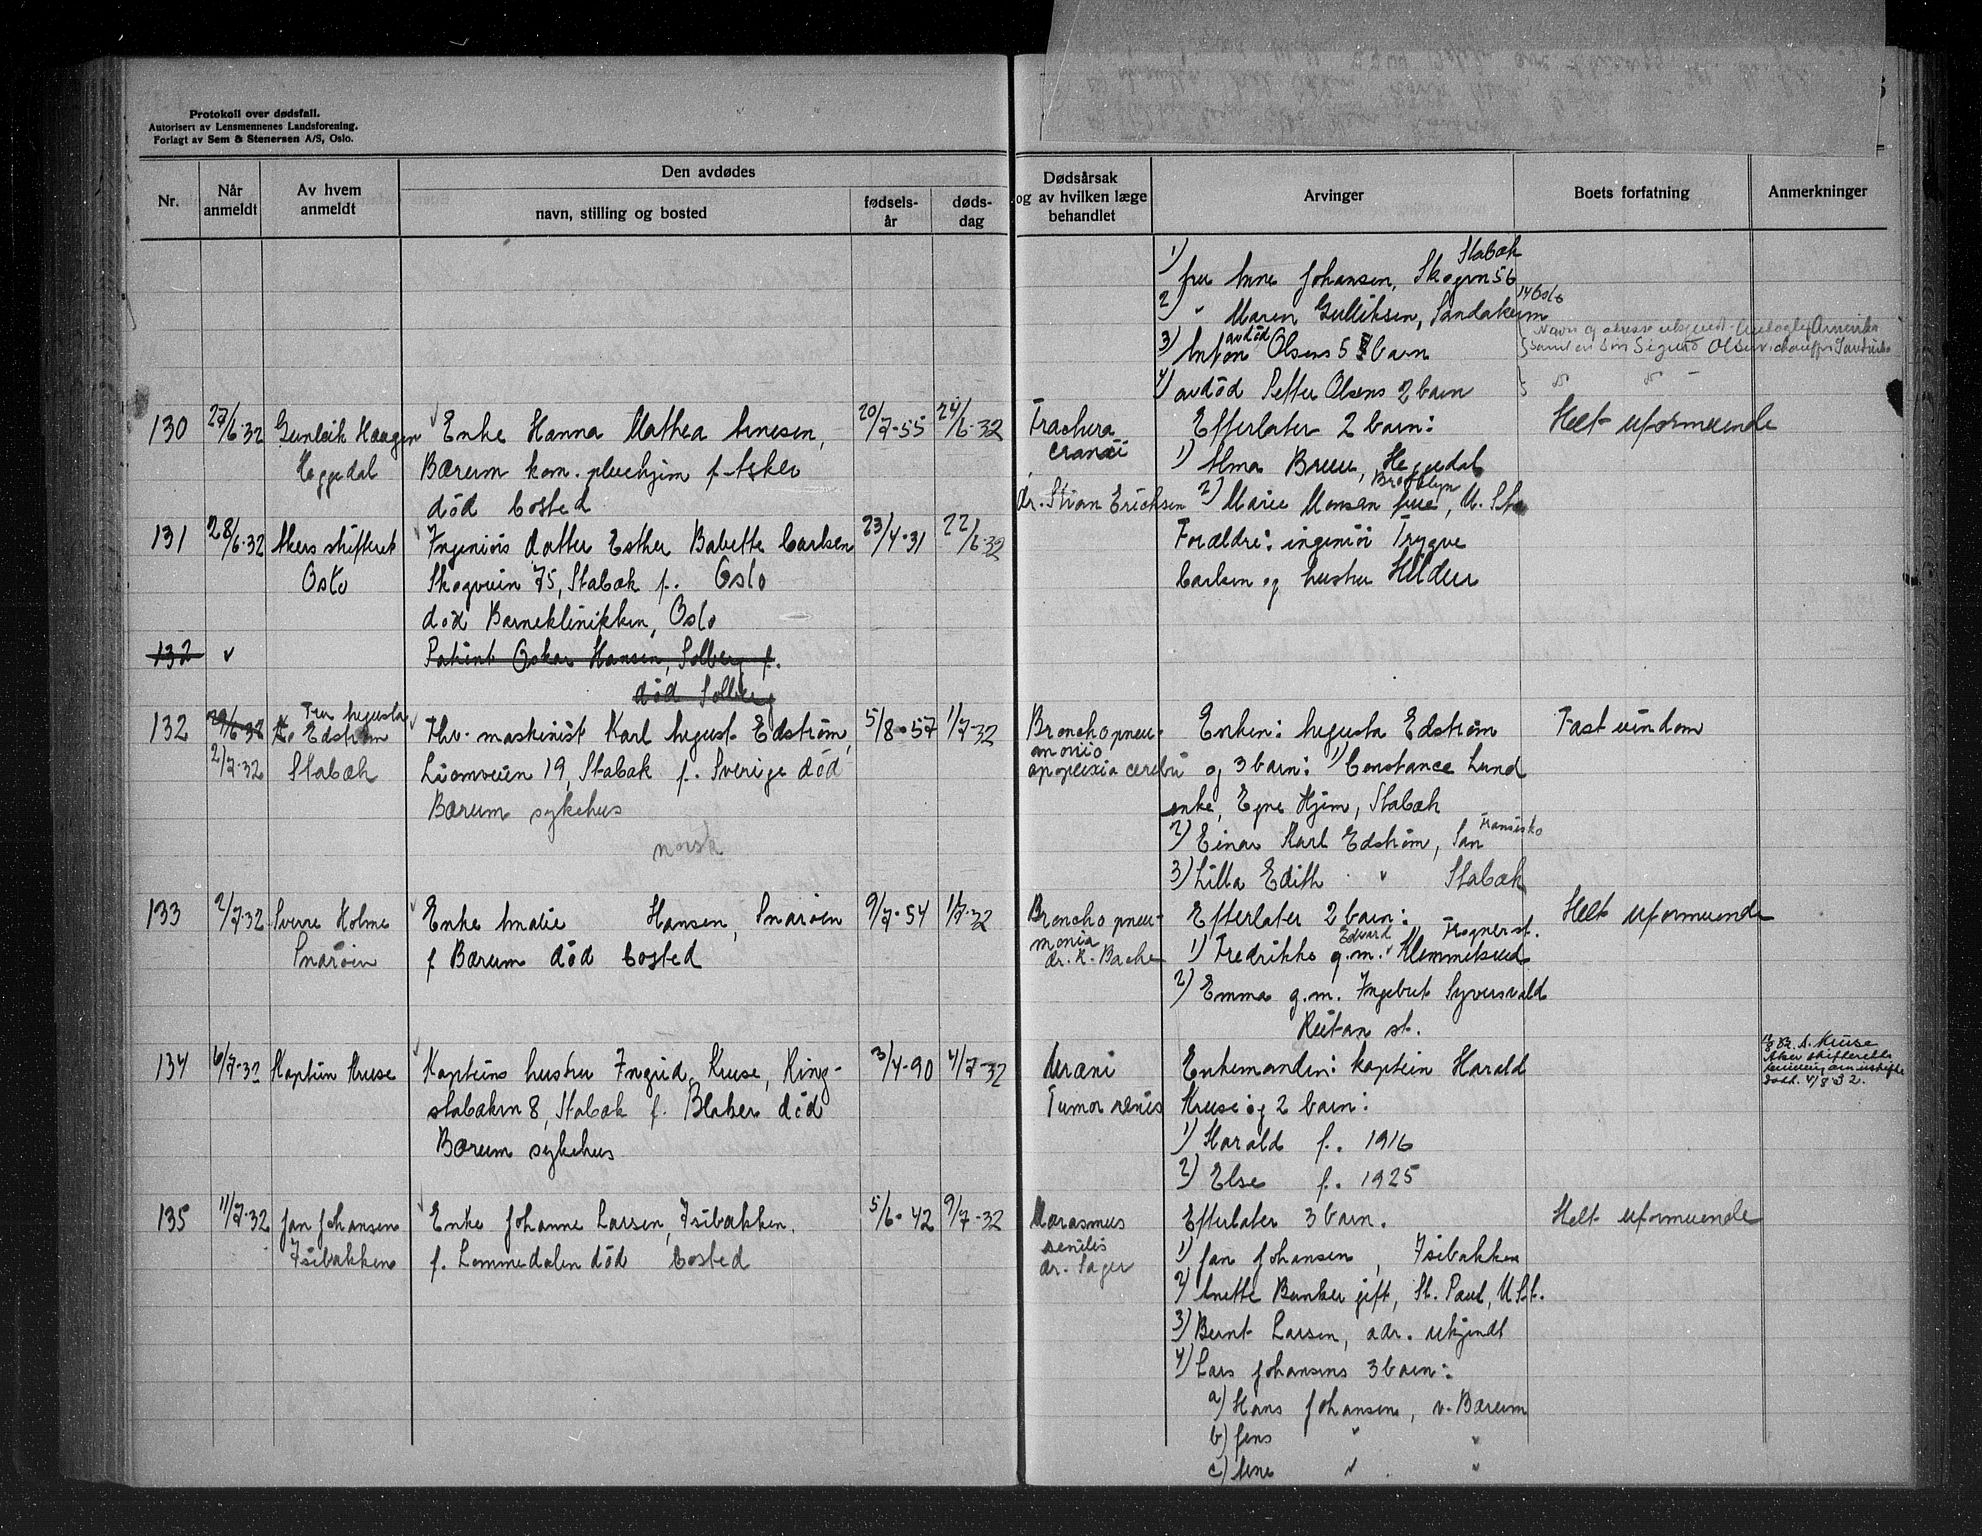 Protokoll over dødsfall.
Autorisert av Lensmennenes Landsforening.
Forlagt av Sem & Stenersen A/S, Oslo.
Nr.
Når anmeldt
Av hvem anmeldt
Den avdødes
navn, stilling og bosted
fødsels-år
døds-dag
Dødsårsak og av hvilken læge behandlet
Arvinger
Boets forfatning
Anmerkninger
Stabæk
1) fru Anne Johansen, Skogvn 56
2) " Maren Gulliksen, Sandakervn
14 Oslo
3) Anton avdød Olsens 5 barn
Navn og adresse ukjendt Amerika
samt en sön Sigurd Olsen
4) avdöd Petter Olsens 2 barn
130 27/6-32 Gunleik Haagen
Heggedal
Enke Hanna Mathea Arnesen,
Bærum kom. pleiehjem f. Asker
död bosted
20/7-55 24/6-32
Fractura
cranii
dr. Stian Erichsen
Efterlater 2 barn:
1) Alma Bruu, Heggedal
Brooklyn
2) Marie Monsen frue, U. Sta
Helt uformuende
131 28/6-32 Akers skifteret
Oslo
Ingeniörs datter Esther Babette Carlsen
Skogveien 75, Stabæk f. Oslo
död Barneklinikken, Oslo
23/4-31 22/6-32
Forældre: ingeniör Trygve
Carlsen og hustru Hildur
132 v
Patient Oskar Hansen, Solberg f.
död Solberg
132 29/6-32 Fru Augusta
Edström
2/7-32 Stabæk
Fhv. maskinist Karl August Edström,
Liomveien 19, Stabæk f. Sverige död
Bærum sykehus
norsk
5/8-57 1/7-32
Bronchopneu-
monio
apoplexia cerebri
Enken: Augusta Edström
og 3 barn: 1) Constance Lund
enke, Egne Hjem, Stabæk
2) Einar Karl Edström, San Fransisko
3) Lilla Edith " Stabæk
Fast eiendom
133 2/7-32 Sverre Holme
Snaröen
Enke Amalie Hansen, Snaröen
f Bærum död bosted
9/7-54 1/7-32
Bronchopneu-
monia
dr. K. Bache
Efterlater 2 barn:
1) Fredrikke g.m. Edvard Klemmetsrud Frognerst.
2) Emma g.m. Ingebret Syversvold
Reitan st.
Helt uformuende
134 6/7-32 Kaptein Kruse
Kapteins hustru Ingrid Kruse, Ring-
stabækvn 8, Stabæk f. Blaker död
Bærum sykehus
3/4-90 4/7-32
Uræmi
Tumor renis
Enkemanden: kaptein Harald
Kruse og 2 barn:
1) Harald f. 1916
2) Else f. 1925
A. Kruse
Aker skifteretts
datt. 4/8 32.
135 11/7-32 Jan Johansen
Isibakken
Enke Johanne Larsen, Isibakken,
f. Lommedalen död bosted
5/6-42 9/7-32
Marasmus
senilis
dr. Sager
Efterlater 3 barn.
1) Jan Johansen, Isibakken
2) Anette Bunker gift, St. Paul, U.St.
3) Bernt Larsen, adr. ukjendt
4) Lars Johansens 3 barn:
a) Hans Johansen, v. Bærum
b) Jens " "
c) Arne " "
Helt uformuende